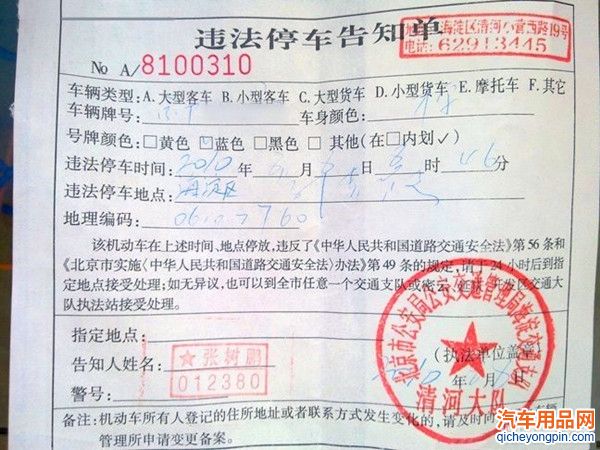 违法停车告知单
地址:海淀区清河小营西路19号
电话:62913445
No A/8100310
车辆类型:A.大型客车 B.小型客车 C.大型货车 D.小型货车 E.摩托车 F.其它
车辆牌号: 车身颜色:
号牌颜色:□黄色 □蓝色 □黑色 □其他(在□内划✓)
违法停车时间:2010年 月 日 时46分
违法停车地点:海淀区
地理编码:
该机动车在上述时间、地点停放,违反了《中华人民共和国道路交通安全法》第56条和
《北京市实施〈中华人民共和国道路交通安全法〉办法》第49条的规定,请于24小时后到指
定地点接受处理。如无异议,也可以到全市任意一个交通支队或密云、延庆、开发区交通大
队执法站接受处理。
指定地点:
告知人姓名:
★张树鹏
012380
警号:
(执法单位盖章)
年 月 日
清河大队
备注:机动车所有人登记的住所地址或者联系方式发生变化的,请及时向 车辆
管理所申请变更备案。
汽车用品网
qicheyongpin.com